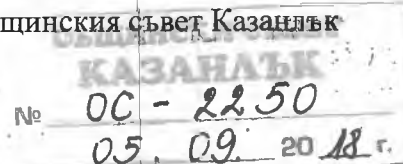 щинския съвет Казанлък
ОБЩИНСКИ
КАЗАНЛЪК
№ ОС - 2250
05. 09. 2018 г.